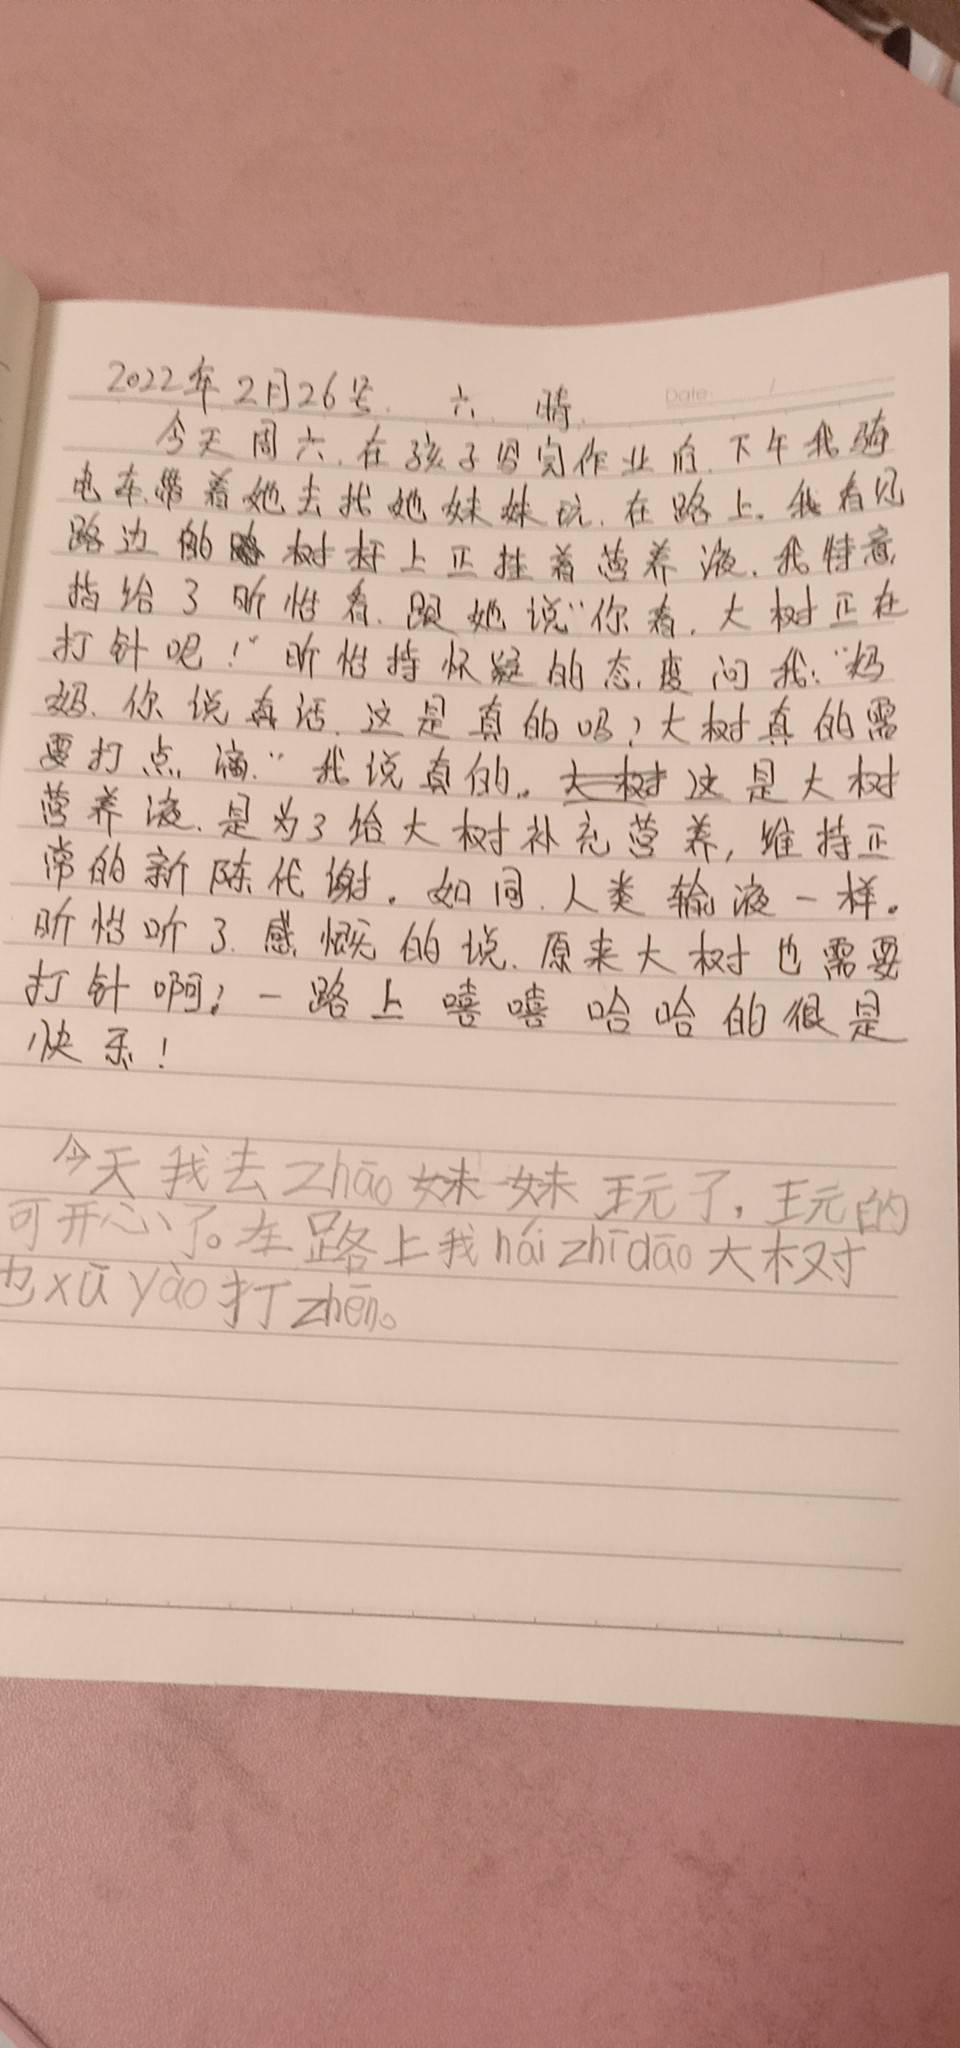 2022年2月26号. 六. 晴.
Date
今天周六.在孩子写完作业后.下午我骑
电车.带着她去找她妹妹玩.在路上.我看见
路边的树杆上正挂着营养液.我特意
指给了昕怡看.跟她说"你看.大树正在
打针吧!"昕怡持怀疑的态度问我:"妈
妈.你说真话.这是真的吗?大树真的需
要打点滴."我说真的。这是大树
营养液.是为了给大树补充营养,维持正
常的新陈代谢。如同.人类输液一样。
昕怡听了.感慨的说.原来大树也需要
打针啊?一路上嘻嘻哈哈的很是
快乐!
今天我去zhāo妹妹玩了,玩的
可开心了。在路上我hái zhīdāo大树
也xū yào打zhēn。